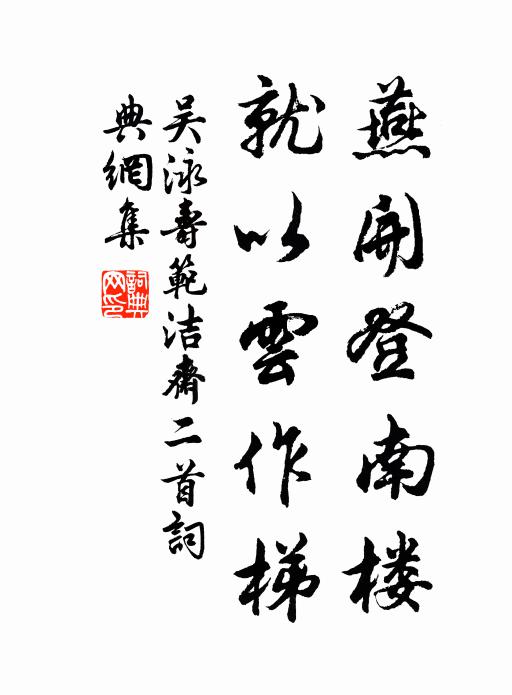 燕開登南楼
就以雲作梯
吴泳壽範洁齋二首詞
典網集
詞典
网印